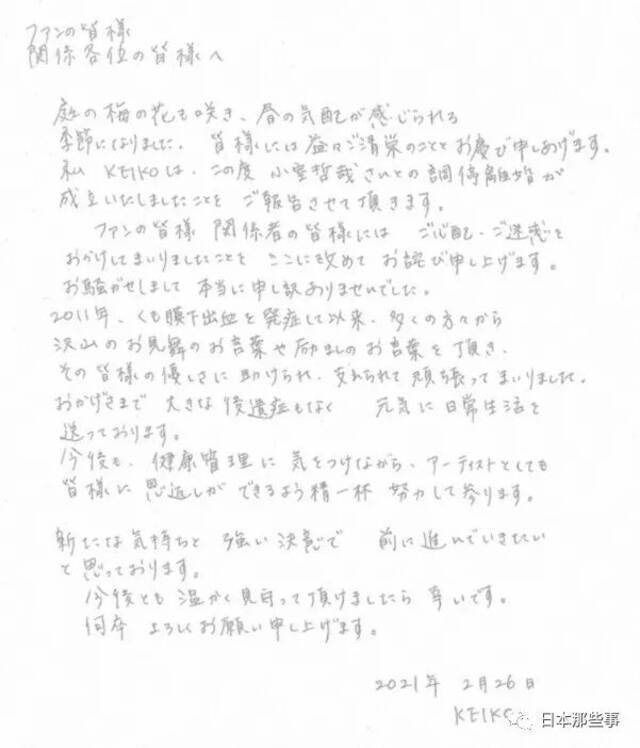 ファンの皆様
関係各位の皆様へ
庭の梅の花も咲き、春の気配が感じられる
季節になりました。皆様には益々ご清栄のこととお慶び申しあげます。
私 KEIKOは、この度 小室哲哉さんとの調停離婚が
成立いたしましたことを ご報告させて頂きます。
ファンの皆様 関係者の皆様には ご心配・ご迷惑を
おかけしてまいりましたことを ここに改めて お詫び申し上げます。
お騒がせしまして 本当に申し訳ありませんでした。
2011年、くも膜下出血を発症して以来、多くの方々から
沢山のお見舞のお言葉や励ましのお言葉を頂き、
その皆様の優しさに助けられ、支えられて 頑張ってまいりました。
おかげさまで 大きな後遺症もなく 元気に日常生活を
送っております。
今後も、健康管理に気をつけながら、アーティストとしても
皆様に恩返しができるよう精一杯 努力して参ります。
新たな気持ちと 強い決意で 前に進んでいきたい
と思っております。
今後とも 温かく見守って頂けましたら 幸いです。
何卒 よろしくお願い申し上げます。
2021年 2月26日
KEIKO
日本那些事